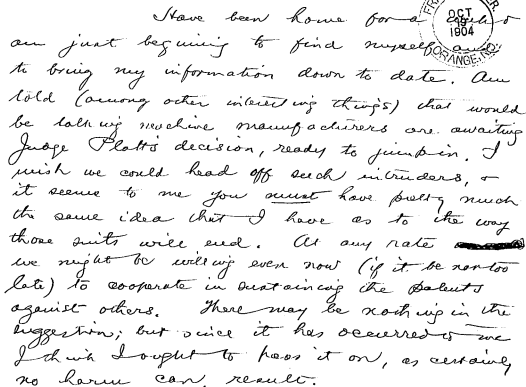 Have been home for a
OCT
19
1904
ORANGE, N.J.
am just beginning to find myself and
to bring my information down to date. Am
told (among other interesting things) that would
be talking machine manufacturers are awaiting
Judge Platt's decision, ready to jump in. I
wish we could head off such intruders, &
it seems to me you must have pretty much
the same idea that I have as to the way
those suits will end. At any rate
we might be willing even now (if it be not too
late) to cooperate in sustaining the patents
against others. There may be nothing in the
suggestion; but since it has occurred to me
I think I ought to pass it on, as certainly
no harm can result.